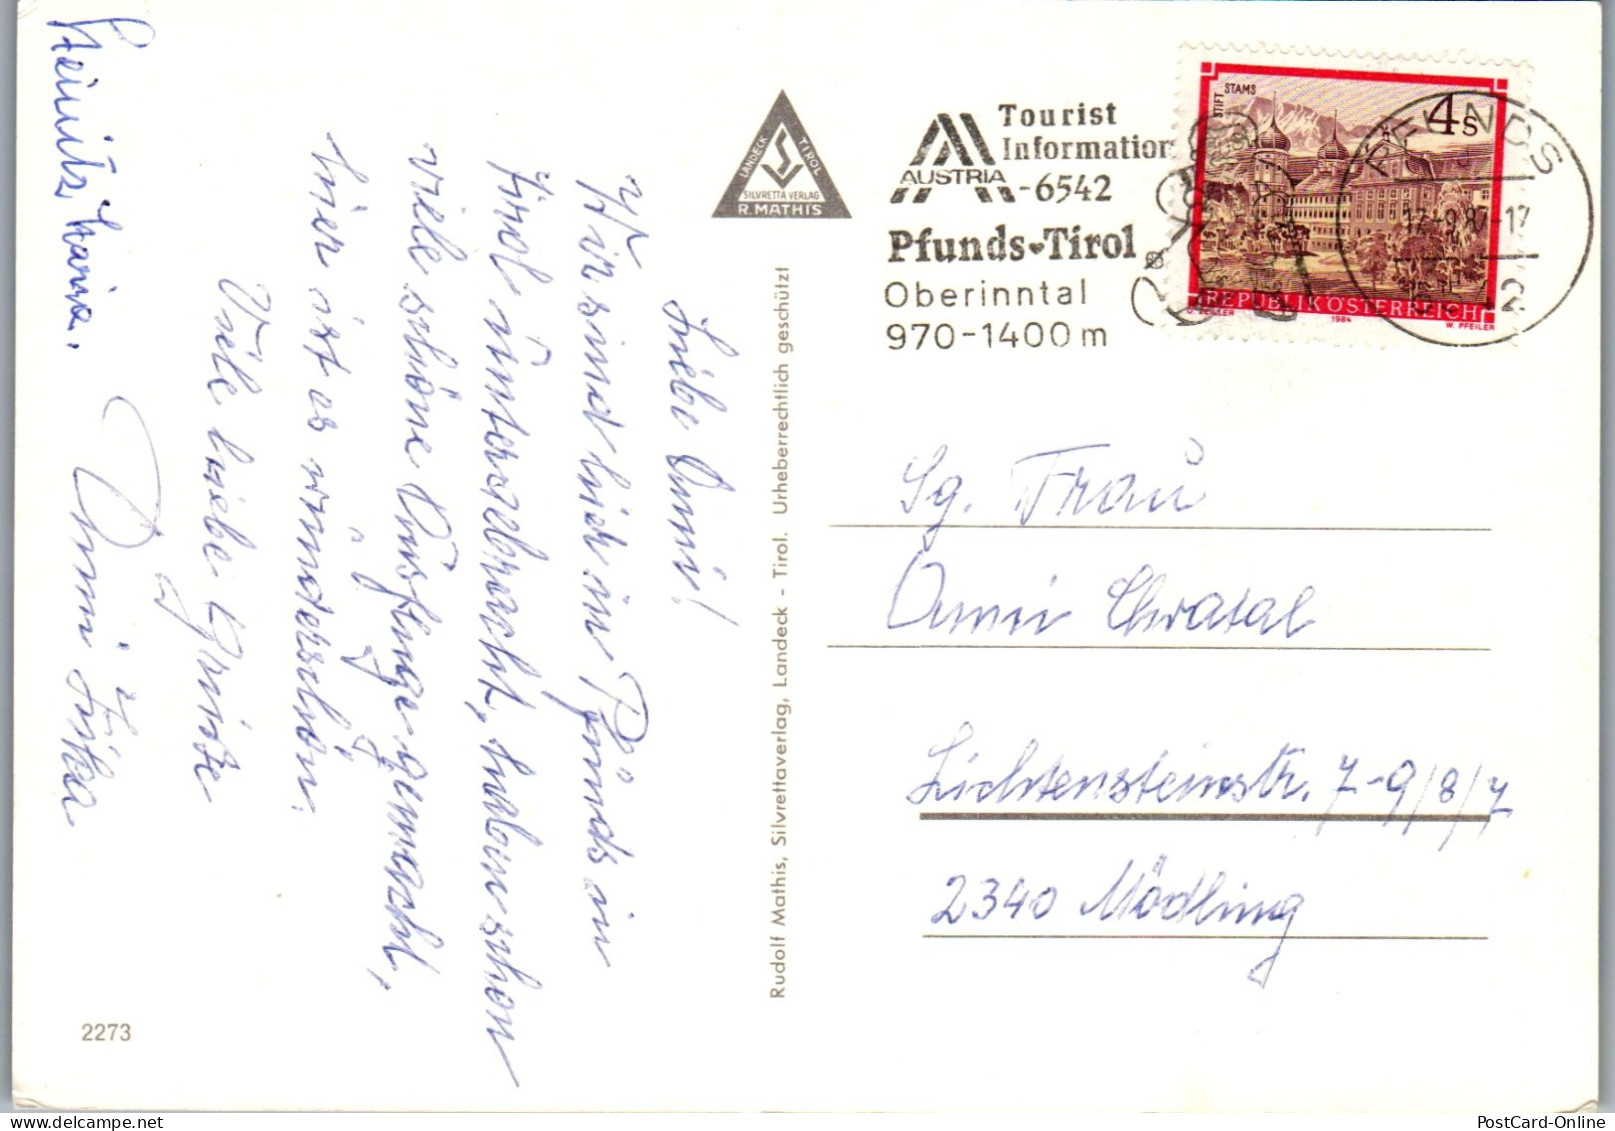 Liebe Ommi!
Wir sind hier in Pfunds in
Tirol untergebracht, haben schon
viele schöne Ausflüge gemacht,
hier ist es wunderschön.
Viele liebe Grüße
Ommi
Maria.
2273
LANDECK TIROL
SILVRETTA VERLAG
R. MATHIS
Rudolf Mathis, Silvrettaverlag, Landeck - Tirol. Urheberrechtlich geschützt
Tourist
Information
AUSTRIA -6542
Pfunds-Tirol
Oberinntal
970-1400 m
STIFT STAMS
4 S
REPUBLIK ÖSTERREICH
1984
W. PFEILER
PFUNDS
-9.87-17
Sg. Frau
Chvatal
Lichtensteinstr. 7-9/8/7
2340 Mödling
PostCard-Online